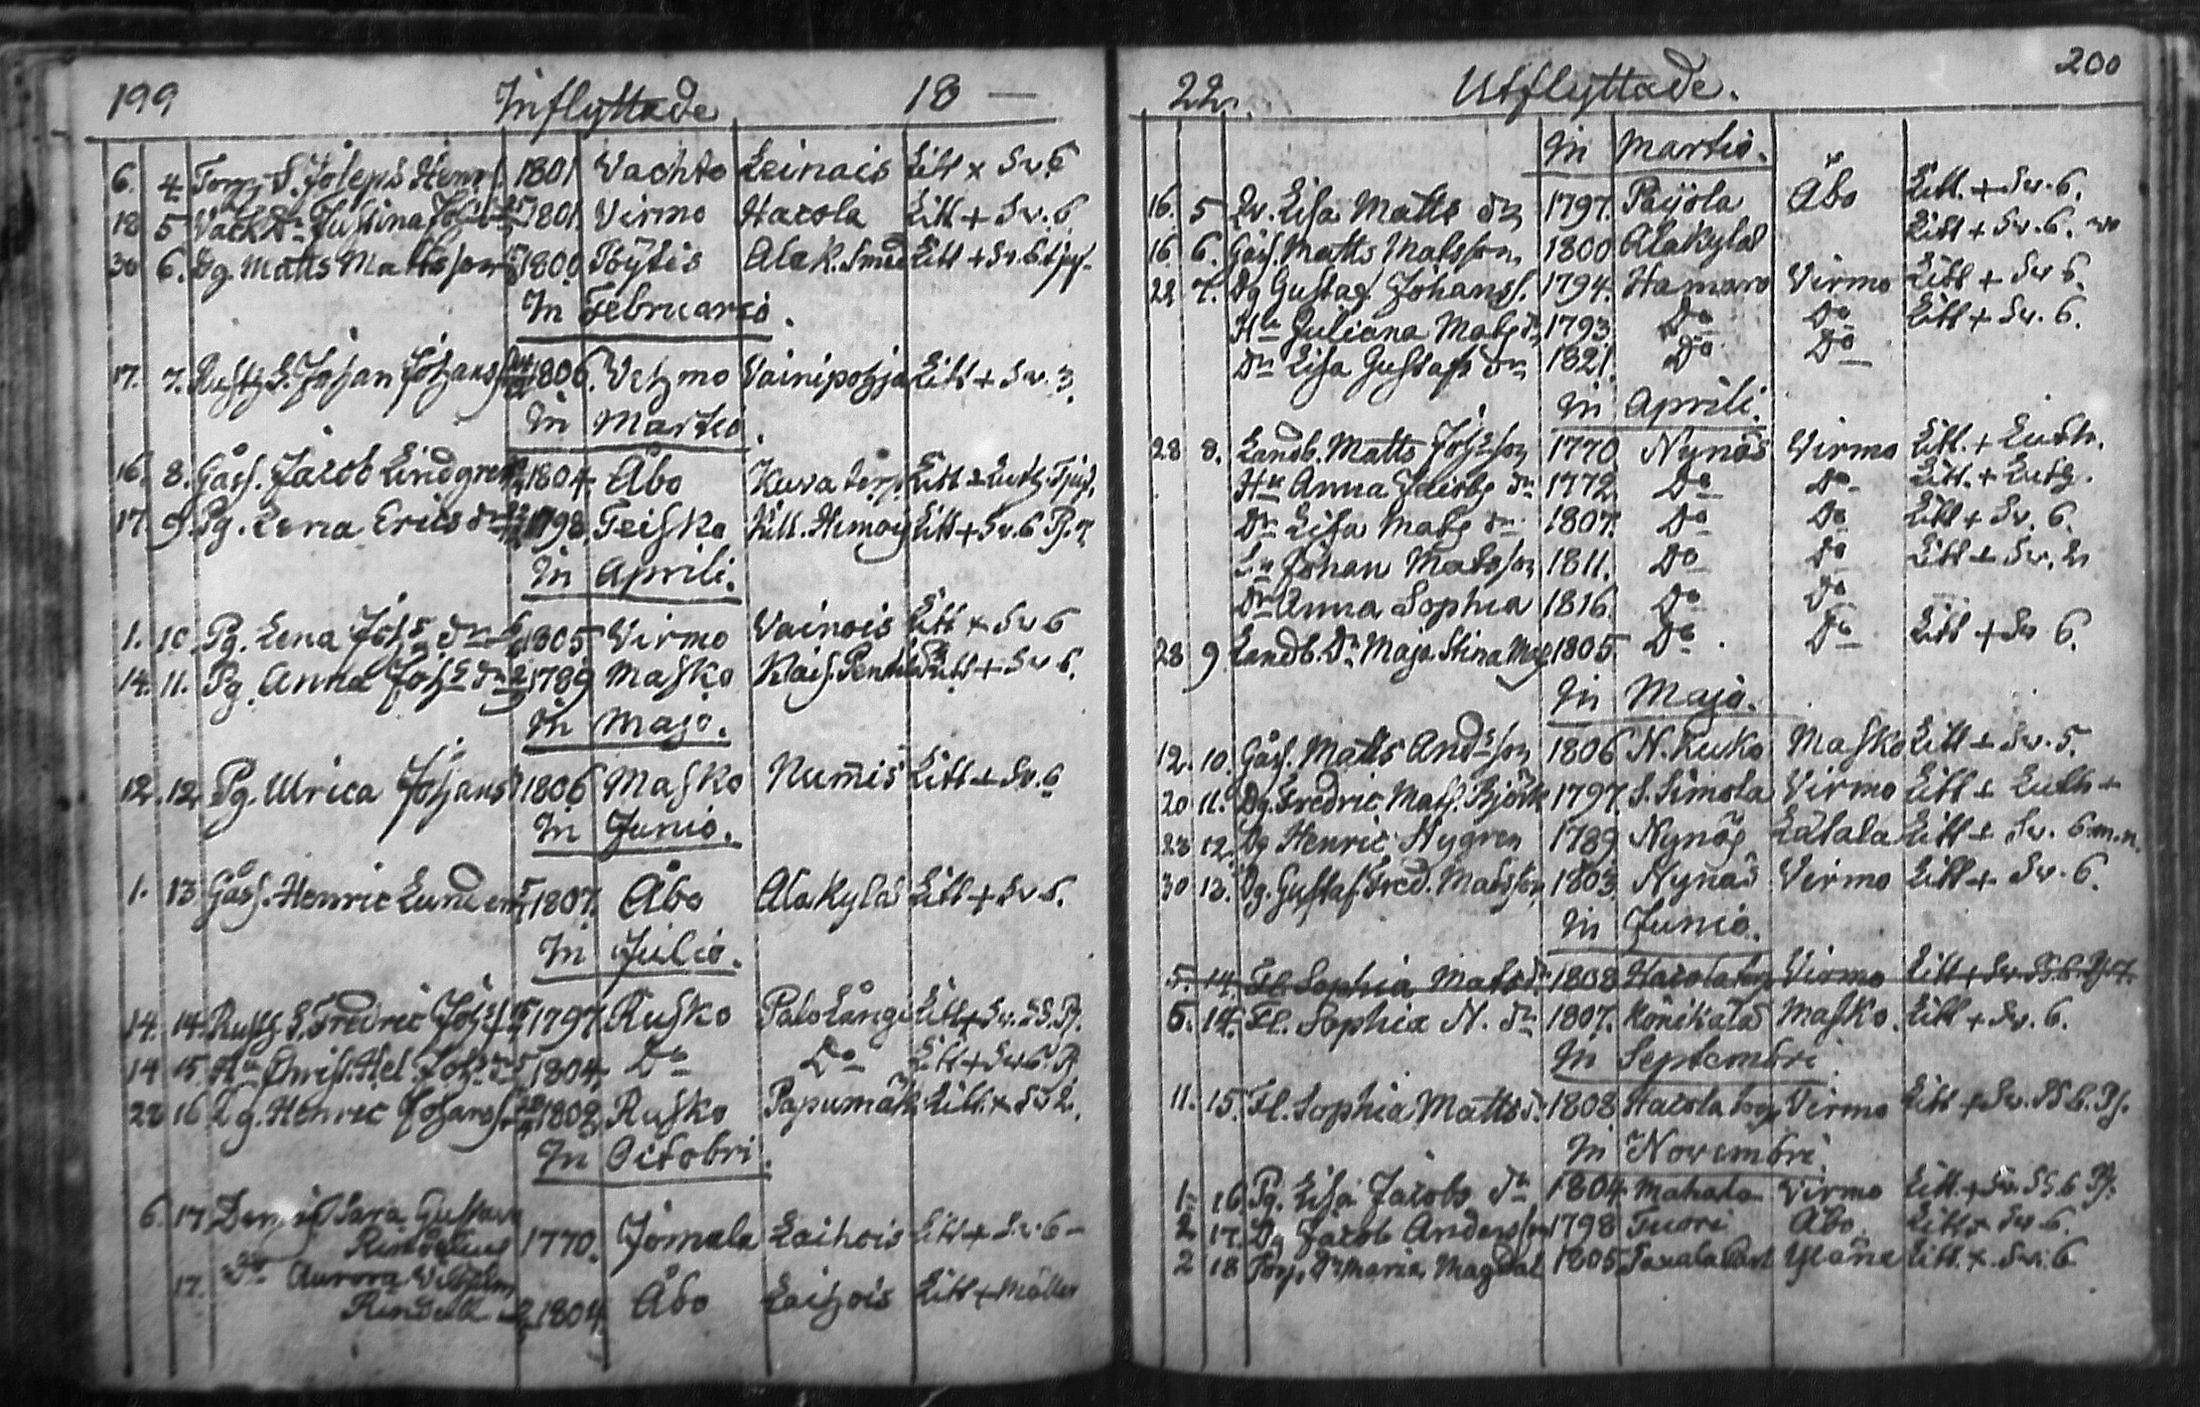 199 Inflyttade 18 —
6. 4. Torp. S. Joseps Henr. 1801 Vachto Leinais Litt × Sv. 6
18 5 Justina 1801 Virmo Hacola Litt + Sv. 6
30 6. Dg. Matts Mattsson 1800 Pöytis Alak. Litt + Sv. 6
In Februario.
17. 7. Rusth. S. Johan Johanss. 1806. Vehmo Vainipohja Litt + Sv. 3.
In Martio.
16. 8. Gåss. Jacob Lindgren 1804. Åbo Kuva torp Litt + Luth.
17. 9. Pg. Lena Erics dr 1798 Teisko Kill. Himois Litt + Sv. 6 Ps. 7
In Aprili.
1. 10. Pg. Lena Johs dr 1805 Virmo Vainois Litt × Sv 6
14. 11. Pg. Anna Johs dr 1789 Masko Klais. Litt + Sv 6.
In Majo.
12. 12. Pg. Ulrica Johans 1806 Masko Num̄is Litt + Sv. 6
In Junio.
1. 13 Gåss. Henric Lunden 1807. Åbo Alakylä Litt + Sv 6.
In Julio.
14. 14. Rusth. S. Fredric Johs 1797 Rusko Palolångi Litt + Sv. SS. Ps.
14 15 Hu Chris. Hel. Johs dr 1804. Do Do Litt + Sv 6. Ps.
22 16 Dg. Henric Johanss. 1808 Rusko Papumäk. Litt. ×
In Octobri.
6. 17. Sara Gustava
1770. Jomala Laihois Litt + Sv. 6 –
17. Do Aurora Vilhelm
1804. Åbo Laihois Litt + Möller
22. Utflyttade. 200
In Martio.
16. 5 Lisa Matts dr 1797. Päijola Åbo Litt. + Sv. 6.
16 6. Gåss. Matts Matsson 1800 Alakylä Litt + Sv. 6.
22 7. Dg Gustaf Johanss. 1794. Hamaro Virmo Litt + Sv 6.
Hu Juliana Mats dr 1793. Do Do Litt + Sv. 6.
Dr Lisa Gustafs dr 1821. Do Do
In Aprili.
28 8. Landb. Matts Johsson 1770 Nynäs Virmo Litt. + Luth.
Hu Anna Jacobs dr 1772. Do Do Litt. + Luth.
Dr Lisa Mats dr 1807. Do Do Litt + Sv. 6.
Sn Johan Matsson 1811. Do Do Litt + Sv. 2
Dr Anna Sophia 1816. Do Do
28 9 Landb. Dr Maja Stina 1805. Do Do Litt + Sv 6.
In Majo.
12. 10. Gåss. Matts Andsson 1806 N. Kuko Masko Litt + Sv. 5.
20 11. Dg. Fredric Mats. Björk 1797. S. Simola Virmo Litt + Luth +
23 12. Dg Henric Nygren 1789 Nynäs Lätala Litt + Sv. 6 m.n.
30 13. Dg. Gustaf Fred. Matsson 1803. Nynäs Virmo Litt + Sv. 6.
In Junio.
5. 14. Fl. Sophia Mats dr 1808 Hacola by Virmo Litt + Sv. SS. 6. Ps. 7.
5. 14. Fl. Sophia N. dr 1807. Könikälä Masko. Litt + Sv. 6.
In Septembri.
11. 15. Fl. Sophia Matts dr 1808 Hacola Virmo Litt + Sv. SS 6. Ps.
In Novembri.
1. 16. Pg. Lisa Jacobs dr 1804 Mahala Virmo Litt. + Sv. SS. 6 Ps.
2 17. Dg Jacob Andersson 1798 Tuori Åbo Litt × Sv 6.
2 18 Torp. Dr Maria Magdal 1805 Yläne Litt. × Sv. 6